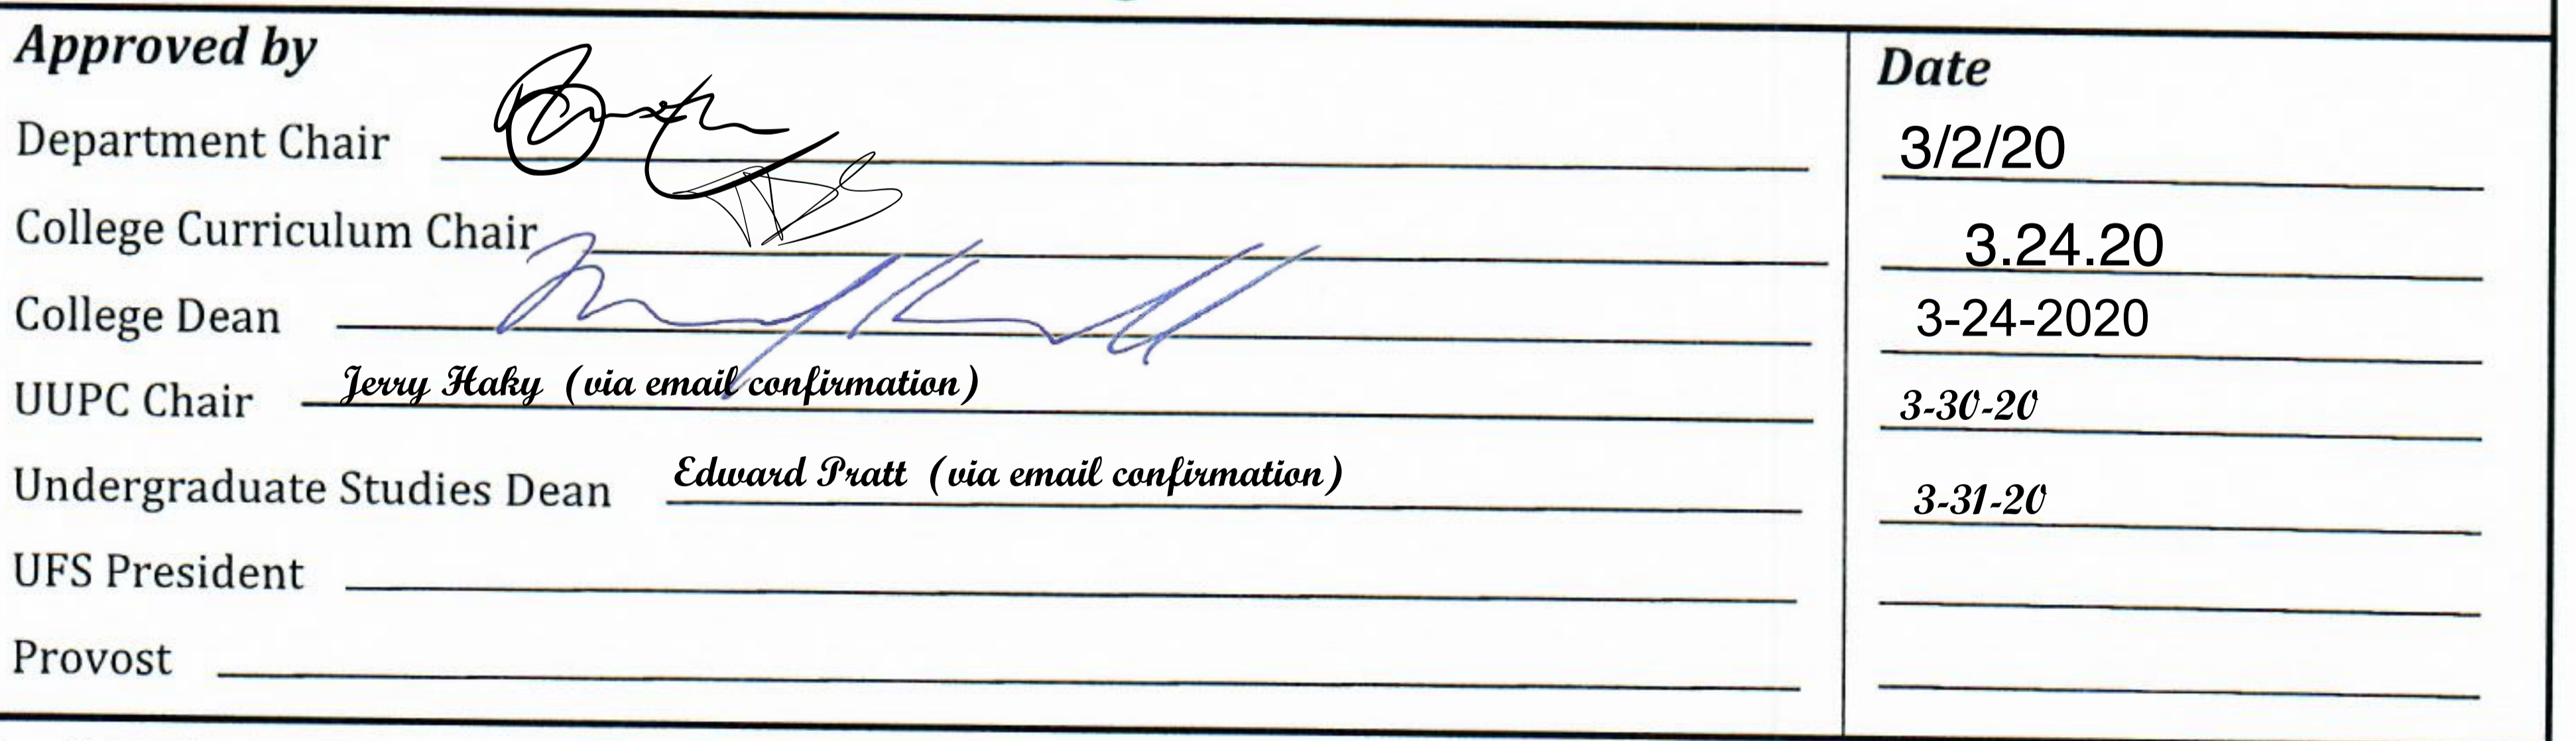 Approved by Date
Department Chair 3/2/20
College Curriculum Chair 3.24.20
College Dean 3-24-2020
UUPC Chair Jerry Haky (via email confirmation) 3-30-20
Undergraduate Studies Dean Edward Pratt (via email confirmation) 3-31-20
UFS President
Provost